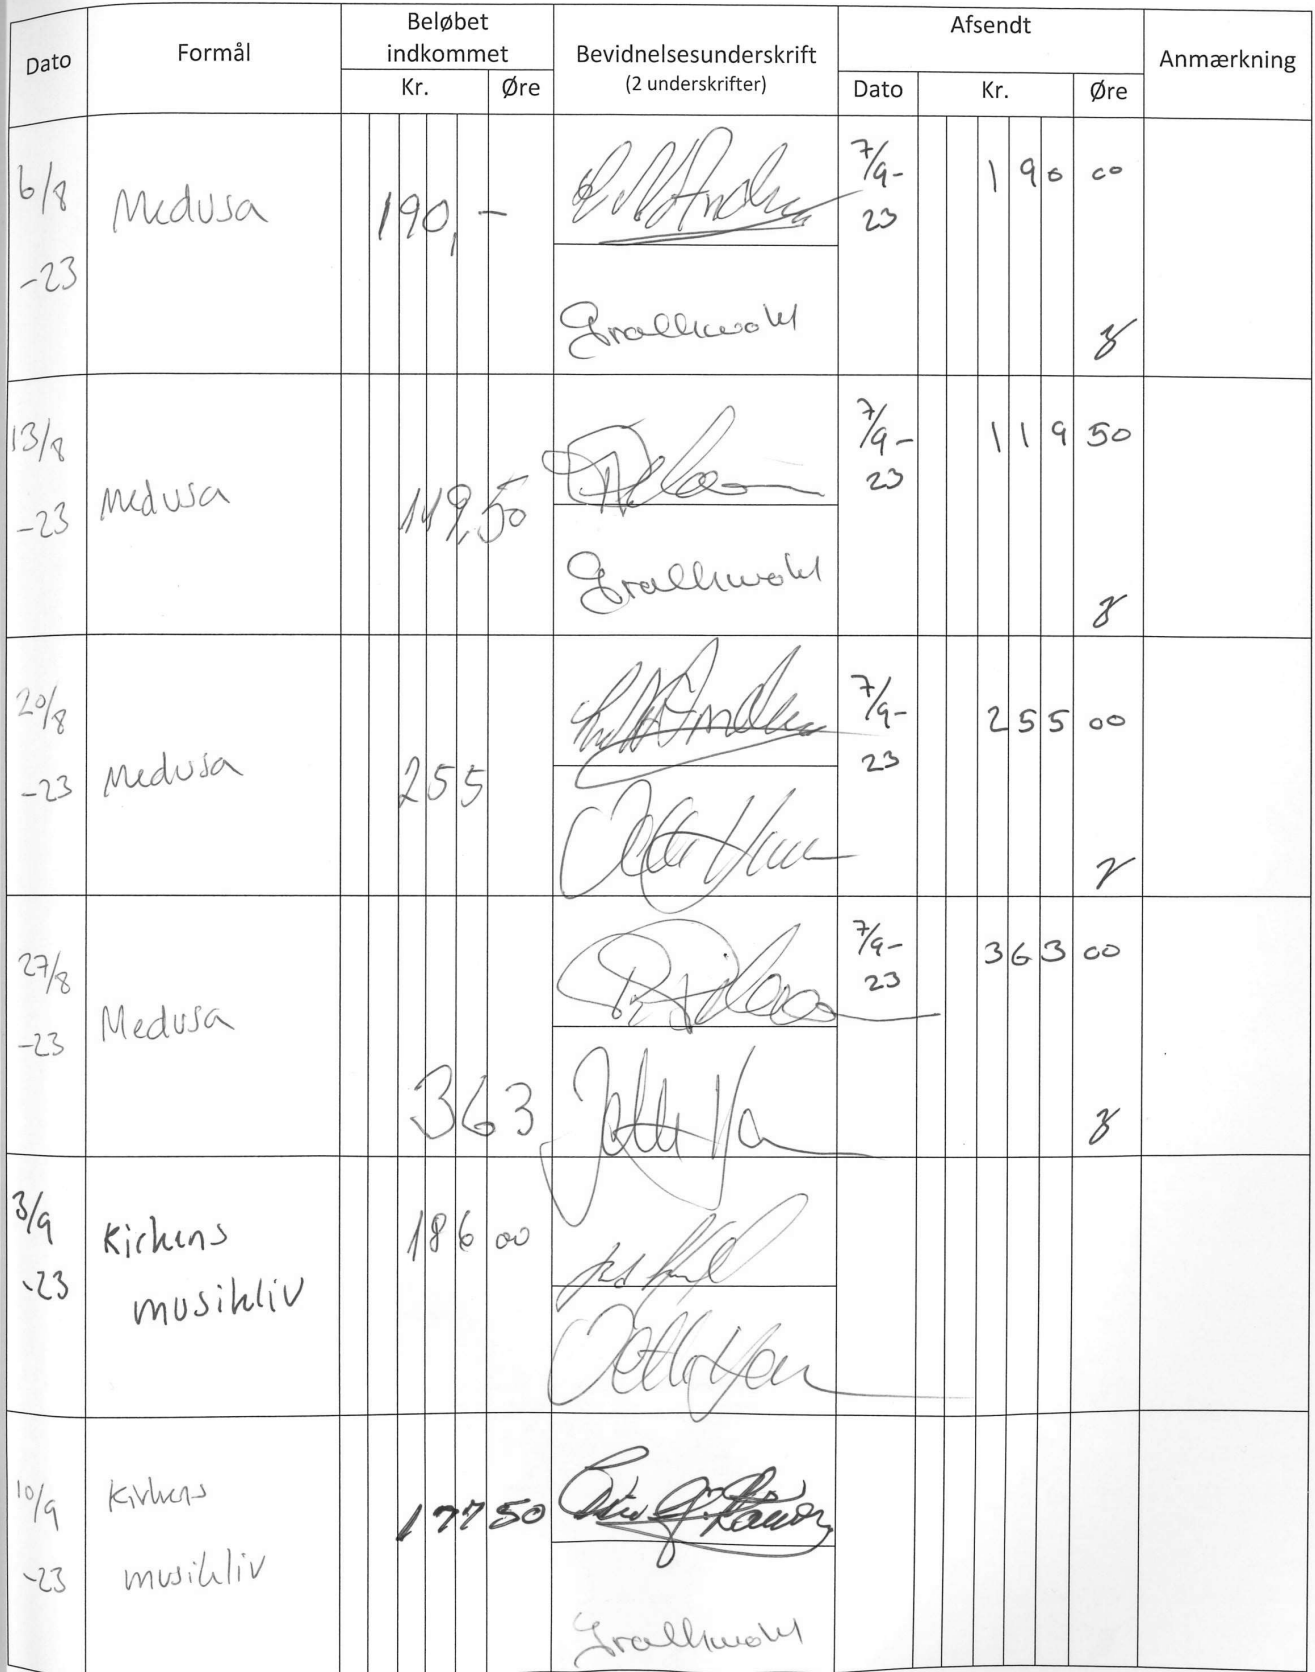 Dato
Formål
Beløbet
indkommet
Kr. Øre
Bevidnelsesunderskrift
(2 underskrifter)
Afsendt
Dato Kr. Øre
Anmærkning
6/8
-23
Medusa
190,-
Grallkwohl
7/9-
23
190 00
13/8
-23
Medusa
119,50
Grallkwohl
7/9-
23
119 50
20/8
-23
Medusa
255
7/9-
23
255 00
27/8
-23
Medusa
363
7/9-
23
363 00
3/9
-23
Kirkens
musikliv
186 00
10/9
-23
Kirkens
musikliv
177 50
Grallkwohl